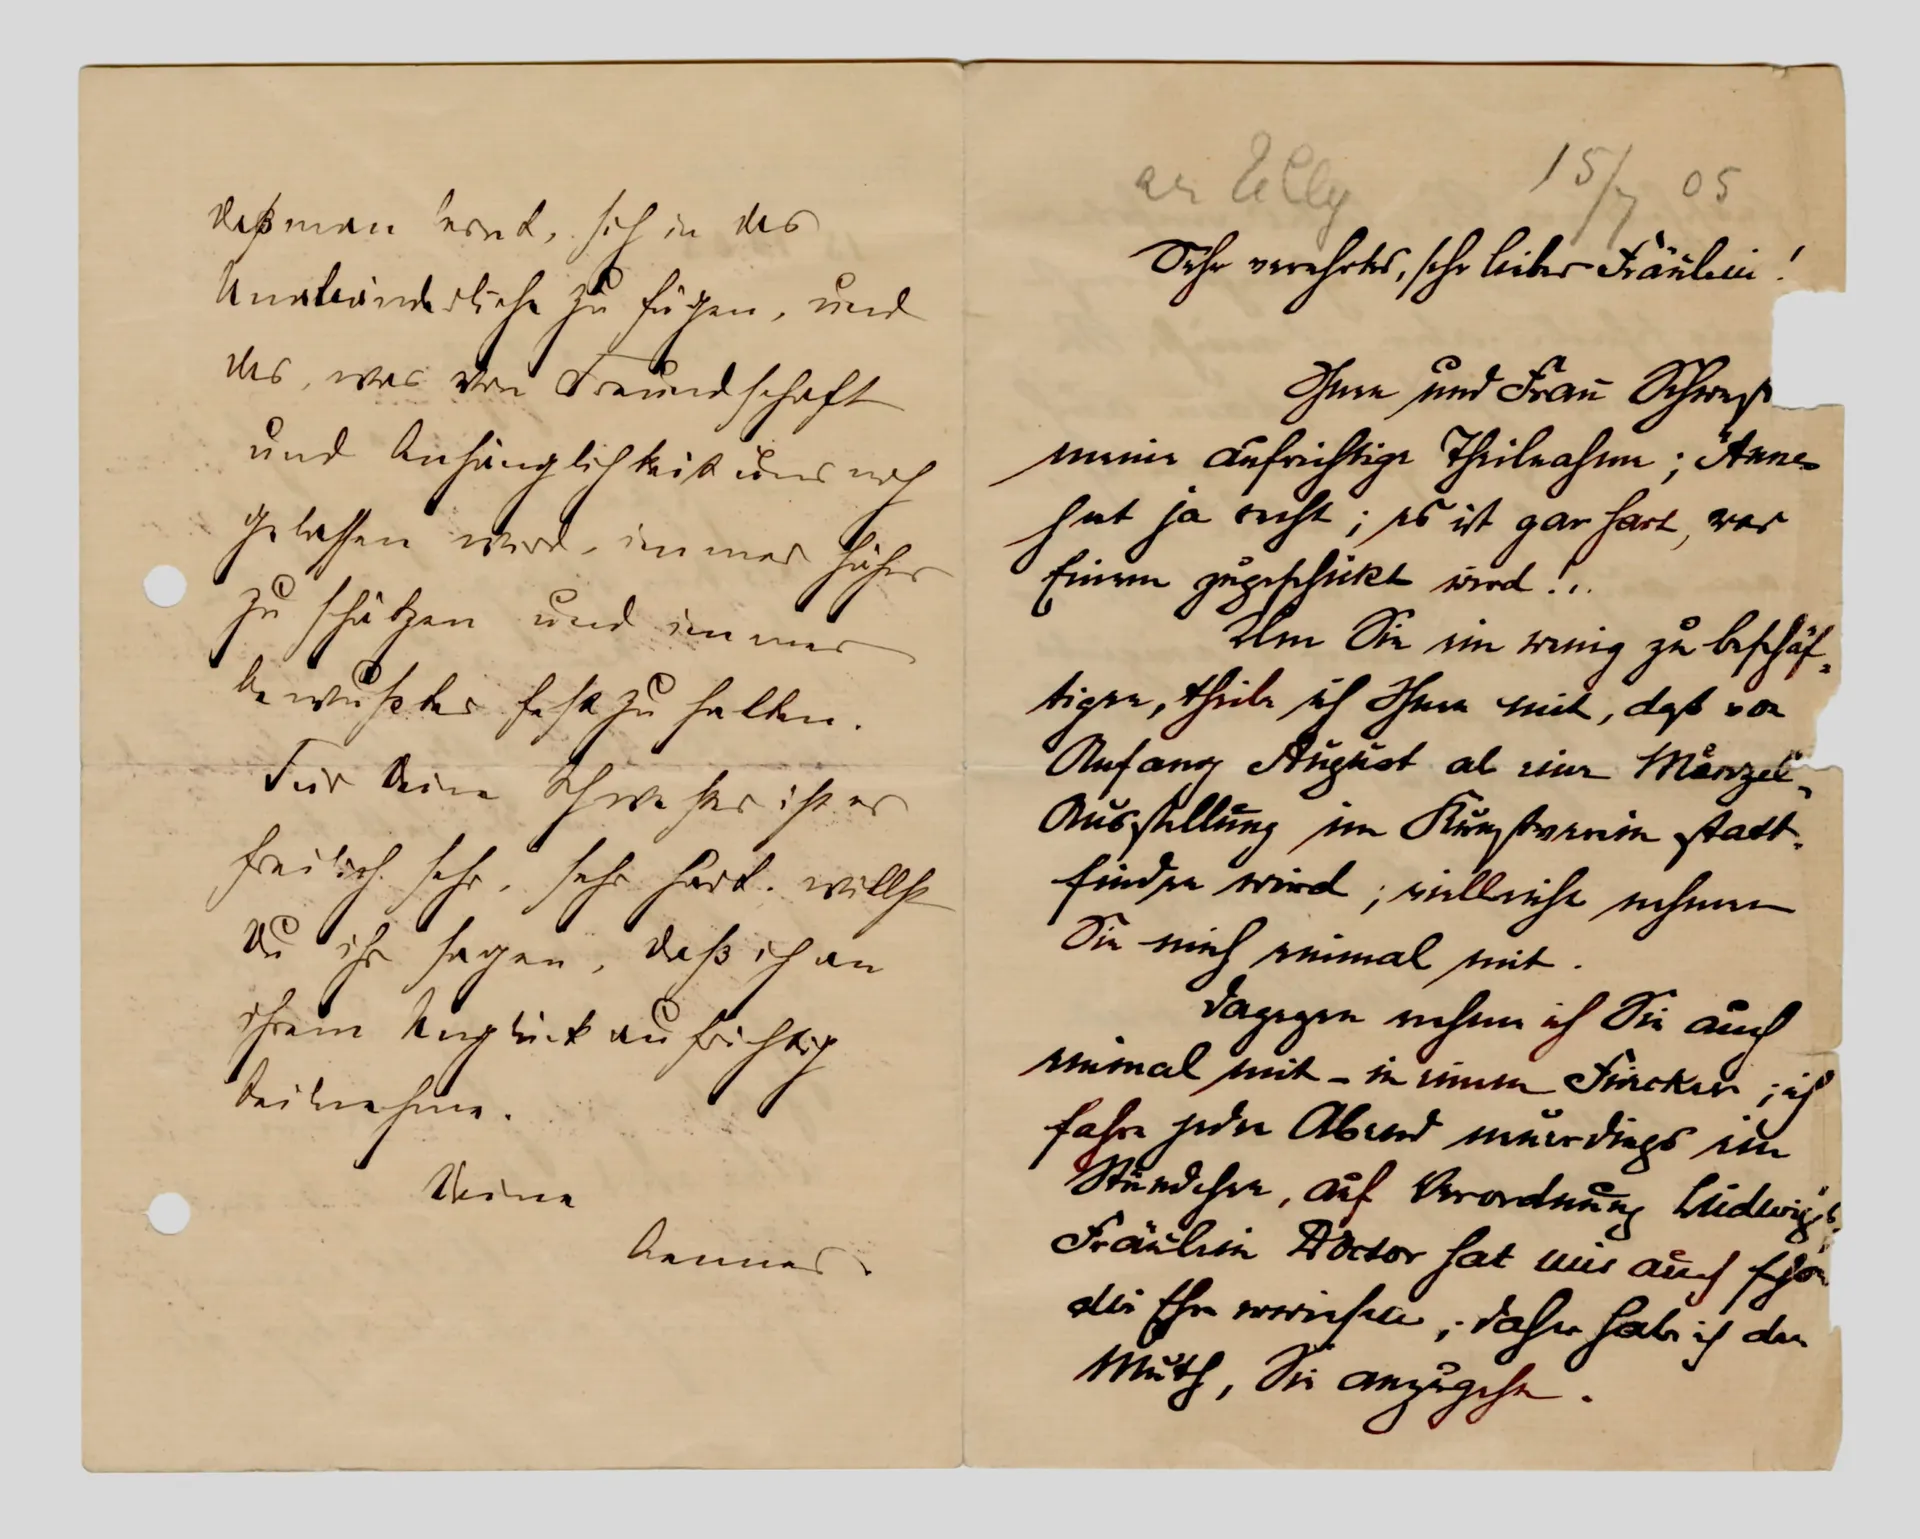 daß man lernt, sich in das
Unabänderliche zu fügen, und
das, was von Freundschaft
und Anhänglichkeit uns noch
gelassen wird, immer höher
zu schätzen und immer
bewußter festzuhalten.
Für Deine Schwester ist es
freilich sehr, sehr hart. willst
Du ihr sagen, daß ich an
ihrem Unglück aufrichtig
teilnehme.
Deine
Aennes.
an Elly 15/7 05
Sehr verehrtes, sehr liebes Fräulein!
Ihnen und Frau Schwest
meine aufrichtige Theilnahme; Änne
hat ja recht; es ist gar hart, was
Einem zugeschickt wird!..
Um Sie ein wenig zu beschäf-
tigen, theile ich Ihnen mit, daß von
Anfang August ab eine
Ausstellung im Kunstverein statt-
finden wird; vielleicht nehmen
Sie mich einmal mit.
Dagegen nehme ich Sie auch
einmal mit – in einem Fiacker; ich
fahre jeden Abend neuerdings ein
Stündchen, auf Verordnung Ludwigs,
Fräulein Doctor hat mir auch schon
die Ehre erwiesen; daher habe ich den
Muth, Sie anzugehen.